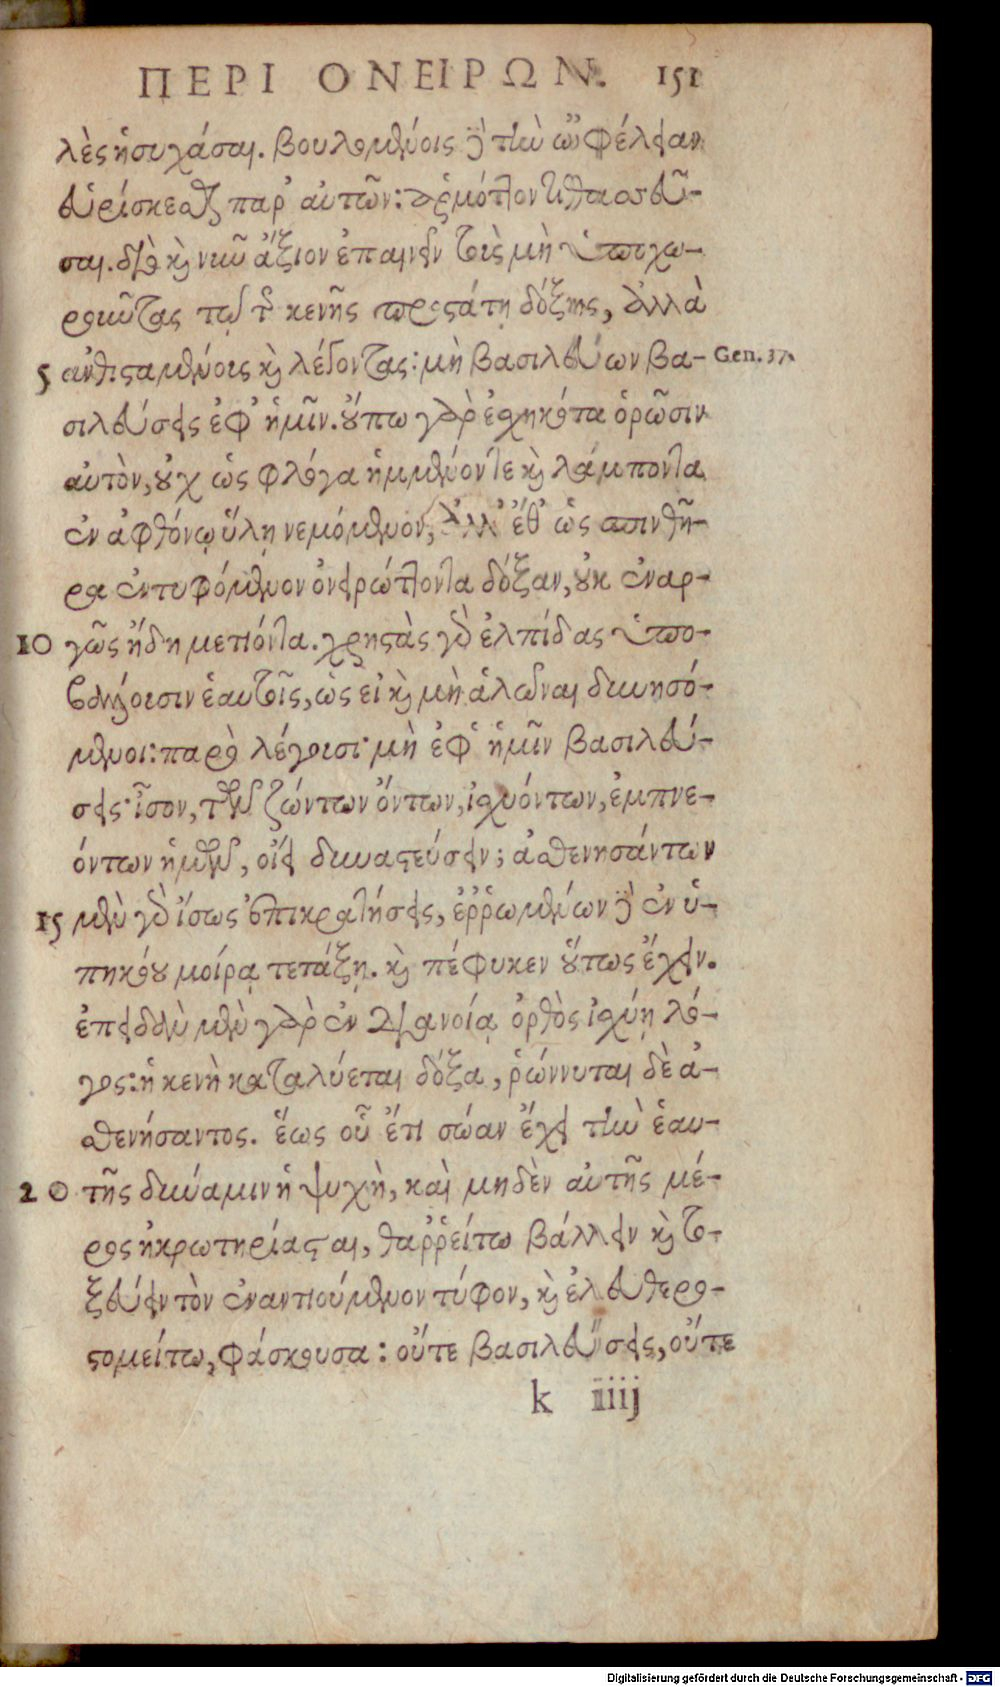 ΠΕΡΙ ΟΝΕΙΡΩΝ. 151
λὲς ἡσυχάσαι. βουλομένοις δὲ τὴν ὠφέλειαν
εὑρίσκεσθαι παρ' αὐτῶν: ἁρμόττον ἐπισπεῦ-
σαι. διὸ καὶ νῦν ἄξιον ἐπαινεῖν τοῖς μὴ ὑποχω-
ροῦντας τῷ τῆς κενῆς προστάτῃ δόξης, ἀλλὰ
5 ἀνθισταμένοις καὶ λέγοντας: μὴ βασιλεύων βα- Gen. 37.
σιλεύσεις ἐφ' ἡμῖν. οὔπω γὰρ ἐσχηκότα ὁρῶσιν
αὐτὸν, οὐχ ὡς φλόγα ἡμμένον τε καὶ λάμποντα
ἐν ἀφθόνῳ ὕλῃ νεμόμενον, ἀλλ' ἔθ' ὡς σπινθῆ-
ρα ἐντυφόμενον ὀνειρώττοντα δόξαν, οὐκ ἐναρ-
10 γῶς ἤδη μετιόντα. χρηστὰς γὰρ ἐλπίδας ὑπο-
βάλλουσιν ἑαυτοῖς, ὡς εἰ καὶ μὴ ἁλῶναι δυνησό-
μενοι: παρὸ λέγουσι· μὴ ἐφ' ἡμῖν βασιλεύ-
σεις· ἶσον, τῶν ζώντων ὄντων, ἰσχυόντων, ἐμπνε-
όντων ἡμῶν, οἴει δυναστεύσειν; ἀσθενησάντων
15 μὲν γὰρ ἴσως ἐπικρατήσεις, ἐῤῥωμένων δὲ ἐν ὑ-
πηκόου μοίρᾳ τετάξῃ. καὶ πέφυκεν οὕτως ἔχειν.
ἐπειδὰν μὲν γὰρ ἐν διανοίᾳ ὀρθὸς ἰσχύῃ λό-
γος: ἡ κενὴ καταλύεται δόξα, ῥώννυται δὲ ἀ-
σθενήσαντος. ἕως οὖν ἔτι σώαν ἔχει τὴν ἑαυ-
20 τῆς δύναμιν ἡ ψυχὴ, καὶ μηδὲν αὐτῆς μέ-
ρος ἠκρωτηρίασται, θαῤῥείτω βάλλειν καὶ το-
ξεύειν τὸν ἐναντιούμενον τύφον, καὶ ἐλευθερο-
στομείτω, φάσκουσα: οὔτε βασιλεύσεις, οὔτε
k iiij
Digitalisierung gefördert durch die Deutsche Forschungsgemeinschaft - DFG